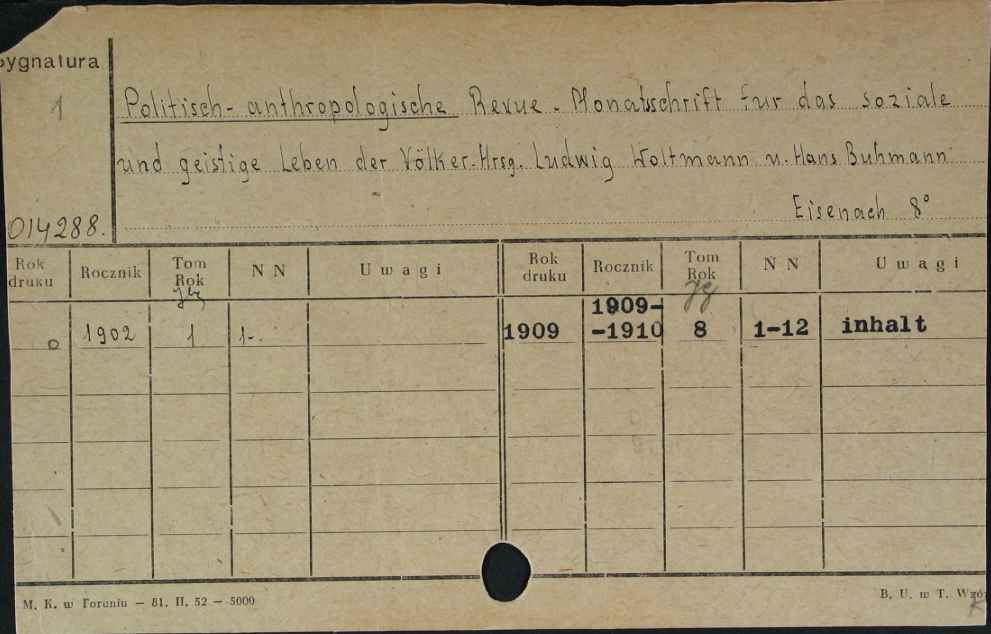 Sygnatura
1
Politisch-anthropologische Revue. Monatsschrift fur das soziale
und geistige Leben der Völker. Hrsg. Ludwig Woltmann u. Hans Buhmann
Eisenach 8°
014288.
Rok druku Rocznik Tom Rok N N Uwagi Rok druku Rocznik Tom Rok N N Uwagi
1909-
0 1902 1 1-. 1909 -1910 8 1-12 inhalt
M. K. w Toruniu — 81. II. 52 — 5000
B. U. w T.